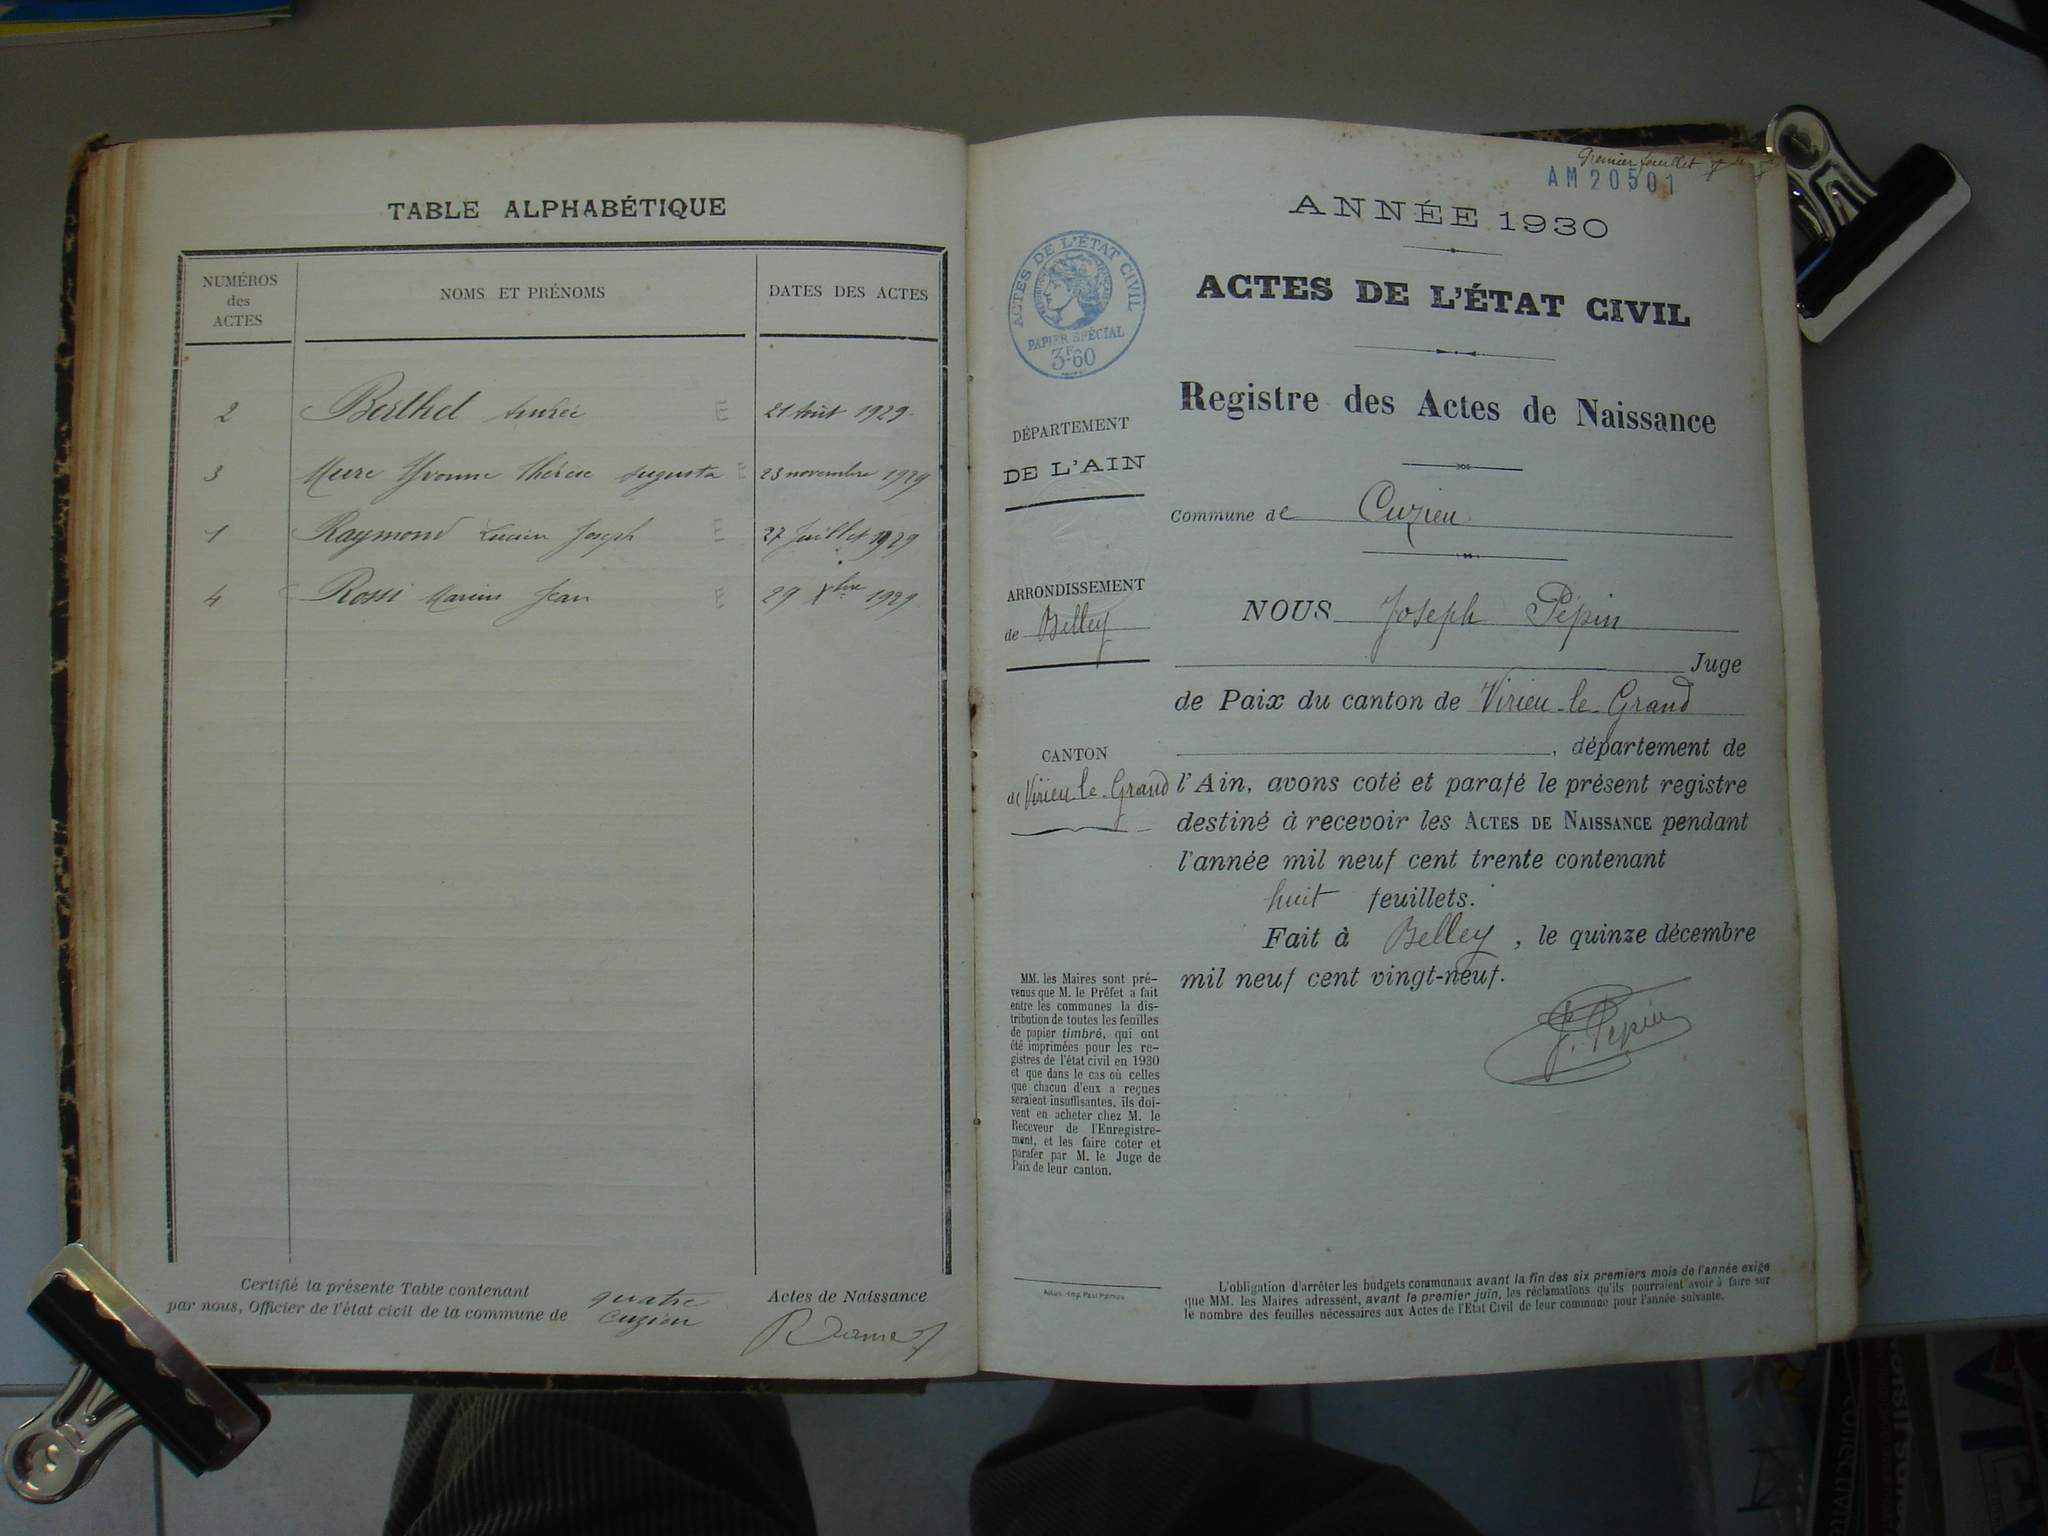 TABLE ALPHABÉTIQUE
NUMÉROS
des
ACTES
NOMS ET PRÉNOMS
DATES DES ACTES
2 Berthet E 21 Août 1929
3 Meere Yvonne Thérèse Augusta E 23 novembre 1929
1 Raymond Lucien Joseph E 27 Juillet 1929
4 Rossi Marius Jean E 29 Xbre 1929
Certifié la présente Table contenant quatre Actes de Naissance
par nous, Officier de l'état civil de la commune de Cuzieu
Premier feuillet
AM 20501
ANNÉE 1930
ACTES DE L'ÉTAT CIVIL
PAPIER SPÉCIAL
3F60
ACTES DE L'ÉTAT CIVIL
Registre des Actes de Naissance
DÉPARTEMENT
DE L'AIN
Commune de Cuzieu
ARRONDISSEMENT
de Belley
CANTON
de Virieu-le-Grand
NOUS Joseph Pépin
Juge
de Paix du canton de Virieu-le-Grand
, département de
l'Ain, avons coté et parafé le présent registre
destiné à recevoir les ACTES DE NAISSANCE pendant
l'année mil neuf cent trente contenant
huit feuillets.
Fait à Belley, le quinze décembre
mil neuf cent vingt-neuf.
J. Pepin
MM. les Maires sont pré-
venus que M. le Préfet a fait
entre les communes la dis-
tribution de toutes les feuilles
de papier timbré, qui ont
été imprimées pour les re-
gistres de l'état civil en 1930
et que dans le cas où celles
que chacun d'eux a reçues
seraient insuffisantes, ils doi-
vent en acheter chez M. le
Receveur de l'Enregistre-
ment, et les faire coter et
parafer par M. le Juge de
Paix de leur canton.
L'obligation d'arrêter les budgets communaux avant la fin des six premiers mois de l'année exige
que MM. les Maires adressent, avant le premier juin, les réclamations qu'ils pourraient avoir à faire sur
le nombre des feuilles nécessaires aux Actes de l'Etat Civil de leur commune pour l'année suivante.